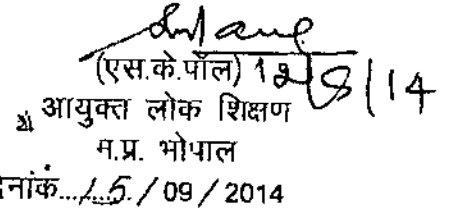 (एस.के.पॉल)
आयुक्त लोक शिक्षण
म.प्र. भोपाल
दिनांक.../.5./ 09 / 2014